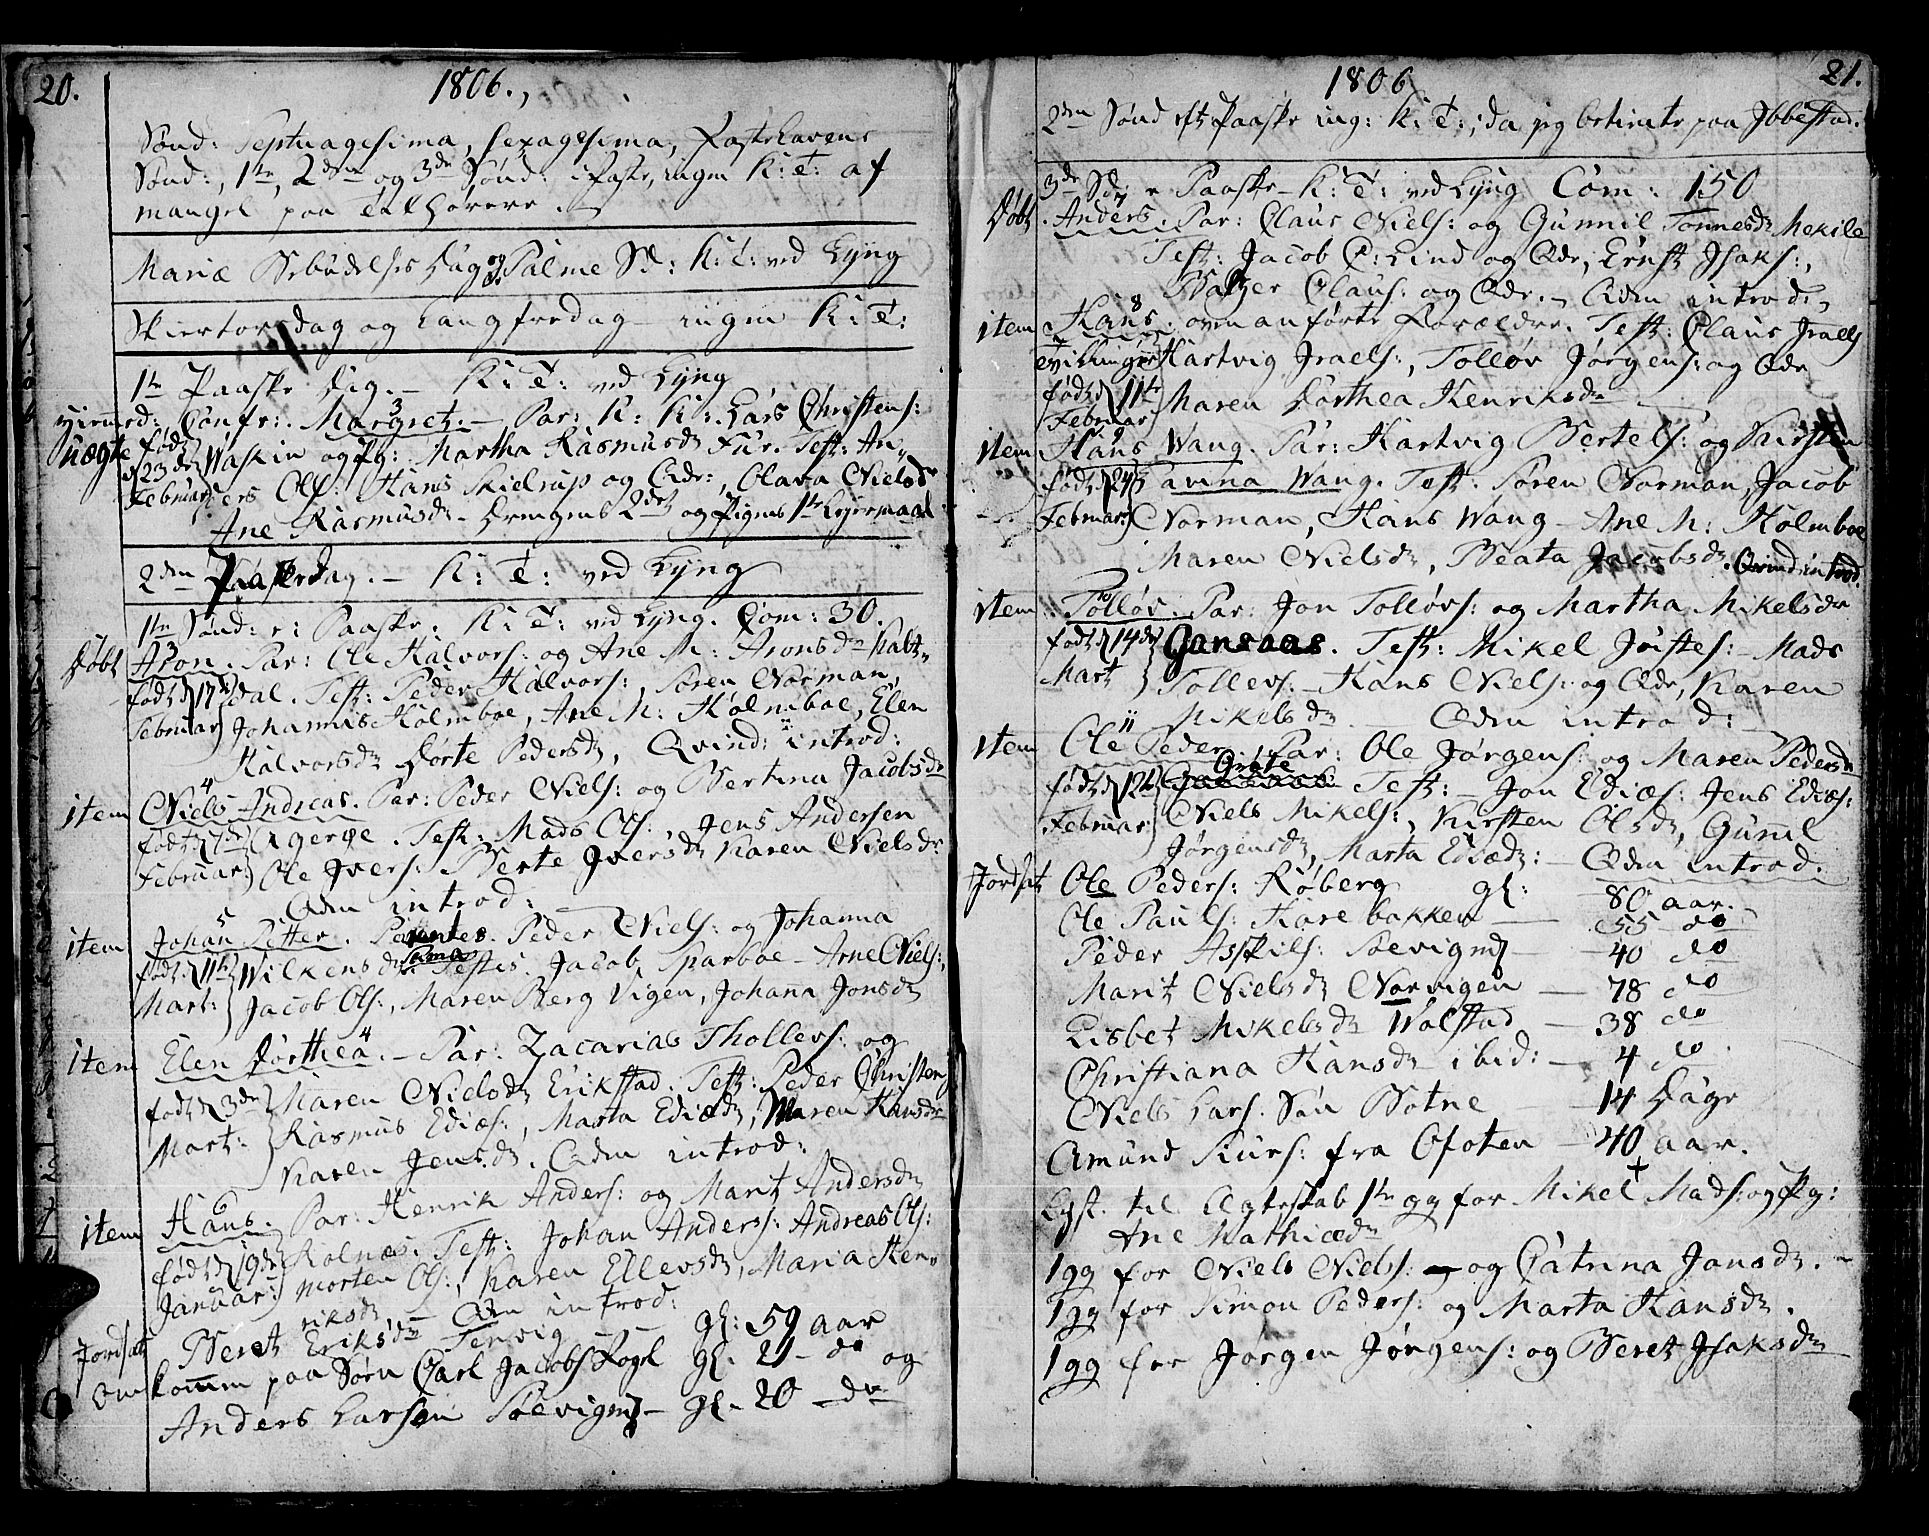 20.
1806.,
Sønd: Septuagesima, Sexagesima, Fastelavens
Sønd:, 1te, 2den og 3de Sønd: i Faste, ingen K: T: af
mangel paa Tilhørere.
Mariæ Bebudelses Dag og Palme Sd: K: T: ved Lyng
Skiertorsdag og Langfredag ingen K: T:
1te Paaske Dag. – K: T: ved Lyng
Hiemed: Confr: Margret. – Par: Lars Christens:
uægte født d 23de og Pg: Martha Rasmusdr Test: An-
Februar ders Ols: Hans Kielrup og Olava Nielsdr
Ane Rasmusdr – Drengens 2det og Pigens 1te Leyermaal
2den Paaskedag. – K: T: ved Lyng
1te Sønd: e: Paaske. K: T: ved Lyng. Com: 30.
Døbt Aron. Par: Ole Halvors: og Ane M: Aronsdr
født d 17de dal. Test: Peder Halvors:, Søren Norman,
Februar Johannes Holmboe, Ane M: Holmboe, Elen
Halvorsdr Dorte Pedersdr, Qvind: introd:
4
item Niels Andreas. Par: Peder Niels: og Bertina Jacobsdr
født d 7de Agerøe. Test: Mads Ols:, Jens Andersen
Februar Ole Ivers: Berte Iversdr Karen Nielsdr
introd:
5
item Johan Petter. Peder Niels: og Johanna
født d 11te Wilkensdr Testes. Jacob Sparboe – Arne Niels:,
Mart: Jacob Ols:, Maren Berg Vigen, Johanna Jonsdr
4
item Elen Dorthea. – Par: Zacarias Thollevs: og
født d 3de Maren Nielsdr Erikstad. Test: Peder Christen
Mart: Rasmus Ediæs:, Marta Ediædr, Maren Hansdr
Karen Jensdr. introd:
6
item Hans. Par: Henrik Anders: og Marit Andersdr
født d 19de Test: Johan Anders: Andreas Ols:
Januar: Morten Ols:, Karen Ellevsdr, Maria Hen-
riksdr – introd:
Jordsat Beret Eriksdr Tenvig – gl: 59 aar
Omkommen paa Søen Carl Jacobs: gl. 21 – do og
Anders Larsen – gl. 20 – do
21.
1806
2den Sønd eft Paaske ing: K: T:, da jeg betiente paa Ibbestad.
3de Sd: e Paaske – K: T: ved Lyng Com: 150
7
Døbt Anders. Par: Claus Niels: og Gunnil Tønnesdr
Test: Jacob C: Lind og Ernst Isaks:,
Baltzer Claus: og – introd:
8
item Hans. ovenanførte Forældre. Test: Claus Iraels
Tvillinger Hartvig Iraels:, Tolløv Jørgens: og
født d 11te Maren Dorthea Henriksdr
Februar
item Hans Wang. Par: Hartvig Bertels: og Kirsten
født d 24 Wang. Test. Søren Norman, Jacob
Februar Norman, Hans Wang – Ane M: Holmboe
Maren Nielsdr, Beata Jacobsdr. Qvind: introd.
10
item Tolløv. Par: Jon Tolløvs: og Martha Mikelsdr
født d 14de Gansaas. Test: Mikel Jøstes: – Mads
Mart Tollevs: – Hans Niels: og Karen
Mikelsdr – introd:
11
item Ole Peder. Par: Ole Jørgens: og Maren Pedersdr
født d 12te Test: – Jon Ediæs: Jens Ediæs:
Februar: Niels Mikels:, Kirsten Olsdr, Gunnil
Jørgensdr, Marta Ediædr: – introd.
Jordsat Ole Peders: Røberg gl: 80 aar.
Ole Pauls: Harebakken – 55 do
Peder Asskils: – 40 do
Marit Nielsdr Norvigen – 78 do
Lisbet Mikelsdr Wolstad – 38 do
Christiana Hansdr ibid: – 4 do
Niels Lars: Søn Botne – 14 Dage
Amund Siurs: fra Ofoten – 40 aar.
Lyst til Ægteskab 1te gg for Mikel Mads: og Pg:
Ane Mathiædr
1gg for Niels Niels: – og Catrina Jansdr. –
1gg for Simon Peders: og Marta Hansdr.
1gg for Jørgen Jørgens: og Beret Isaksdr